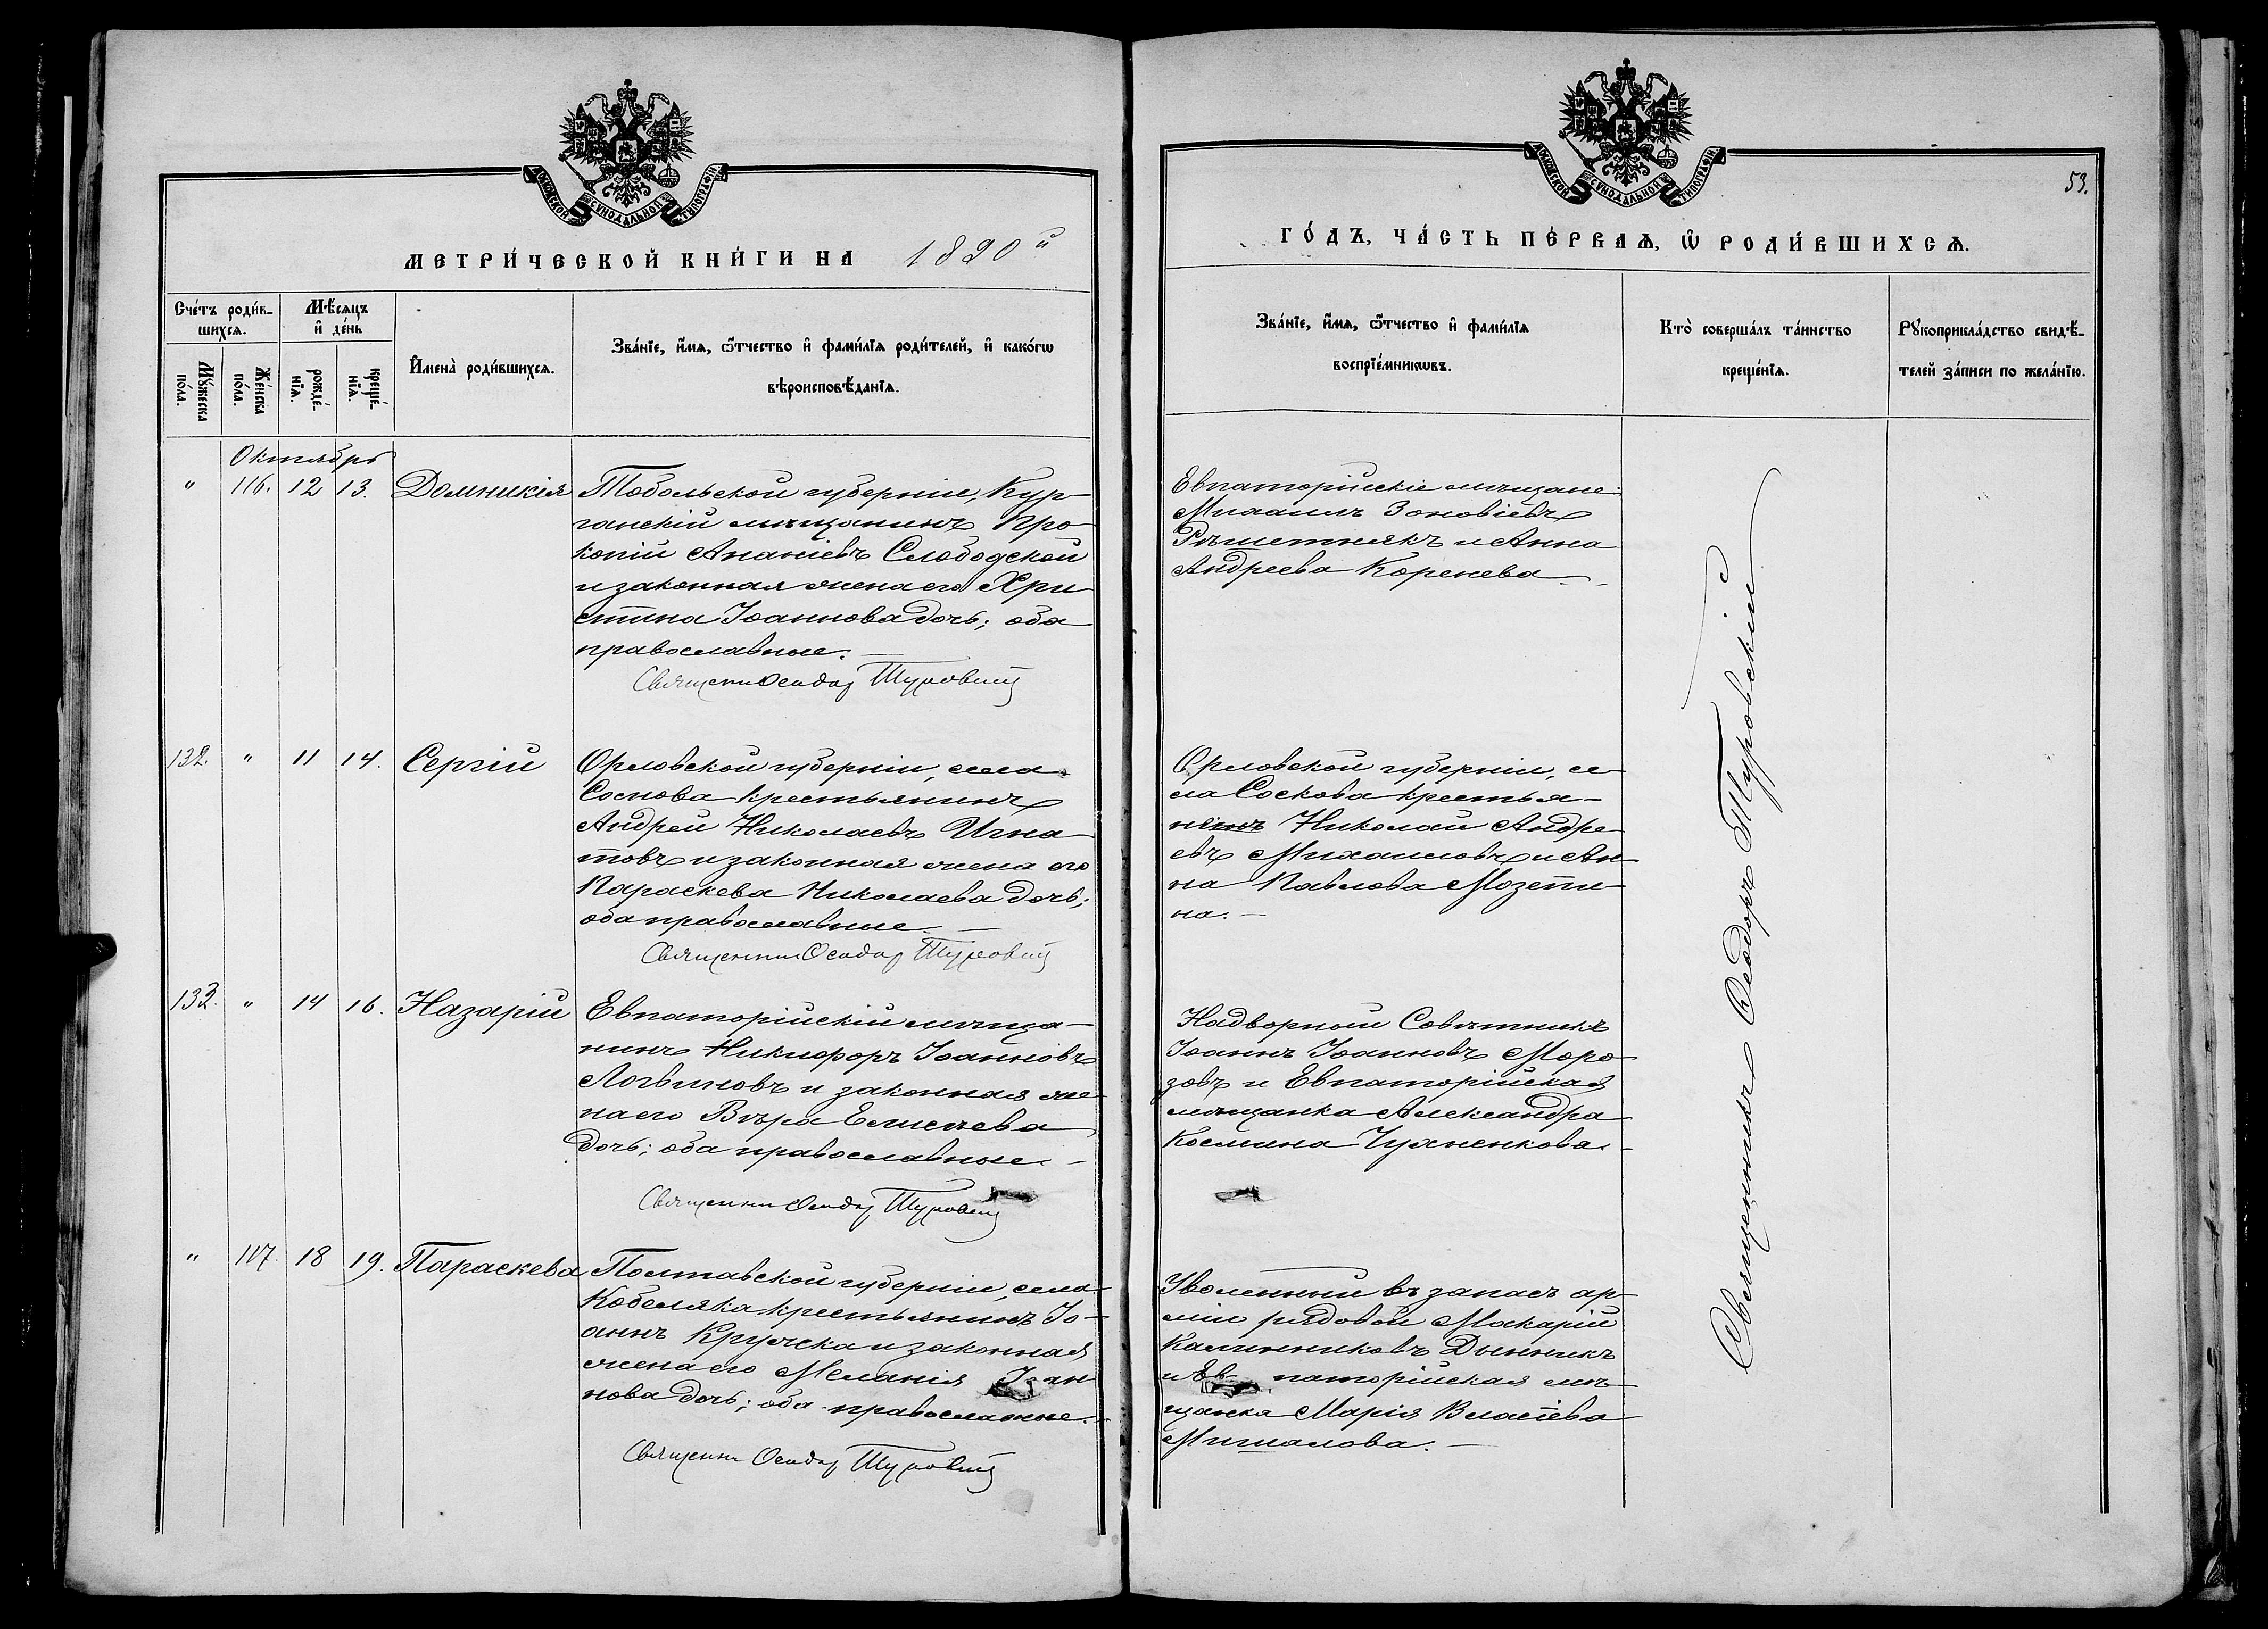 МОСКОВСКОЙ СУНОДАЛЬНОЙ ТИПОГРАФІИ
МЕТРИ́ЧЕСКОЙ КНИ́ГИ НА 1890й
Сче́тъ роди́в-
шихсѧ.
Мѣ́сѧцъ
и҆ де́нь
Мꙋ́жеска
по́ла.
Же́нска
по́ла.
рожде́-
нїѧ.
креще́-
нїѧ.
И҆мена̀ роди́вшихсѧ.
Зва́нїе, и҆́мѧ, ѻ҆́тчество и҆ фами́лїѧ роди́телей, и҆ како́гѡ
вѣроисповѣ́данїѧ.
Октябрь
" 116. 12 13. Домникія
Тобольской губерніи, Кур-
ганскій мѣщанинъ Про-
копій Ананіевъ Слободской
и законная жена его Хри-
стина Іоаннова дочь; оба
православные. —
Священни Ѳеодор Туровский
132. " 11 14. Сергій
Орловской губерніи, села
Соскова крестьянинъ
Андрей Николаевъ Игна-
товъ и законная жена его
Параскева Николаева дочь;
оба православные. —
Священник Ѳеодор Туровский
133. " 14 16. Назарій
Евпаторійскій мѣща-
нинъ Никифоръ Іоанновъ
Логвиновъ и законная же-
на его Вѣра Елисѣева
дочь; оба православные. -
Священни Ѳеодор Туровский
" 117. 18 19. Параскева
Полтавской губерніи, села
Кобеляка крестьянинъ Іо-
аннъ и законная
жена его Меланія Іоан
нова дочь; оба православные. -
Священни Ѳеодор Туровский
МОСКОВСКОЙ СУНОДАЛЬНОЙ ТИПОГРАФІИ
53.
ГО́ДЪ, ЧА́СТЬ ПЕ́РВАѦ, Ѡ҆ РОДИ́ВШИХСѦ.
Зва́нїе, и҆́мѧ, ѻ҆́тчество и҆ фами́лїѧ
воспрїе́мникѡвъ.
Кто̀ соверша́лъ та́инство
креще́нїѧ.
Рꙋкоприкла́дство свидѣ́-
телей за́писи по жела́нїю.
Евпаторійскіе мѣщане:
Михаилъ Зоновіевъ
Рѣшетнякъ и Анна
Андреева Коренева. -
Орловской губерніи, се-
ла Соскова крестья-
нинъ Николай Андре-
евъ Михаиловъ и Ан-
на Павлова
на. —
Надворный Совѣтникъ
Іоаннъ Іоанновъ Моро-
зовъ и Евпаторійская
мѣщанка Александра
Космина Чухненкова. -
Уволенный въ запасъ ар-
міи рядовой Макарій
Калинниковъ Дынникъ
и Ев паторійская мѣ-
щанка Марія Власіева
Мишалова. —
Священникъ Ѳеодоръ Туровскій